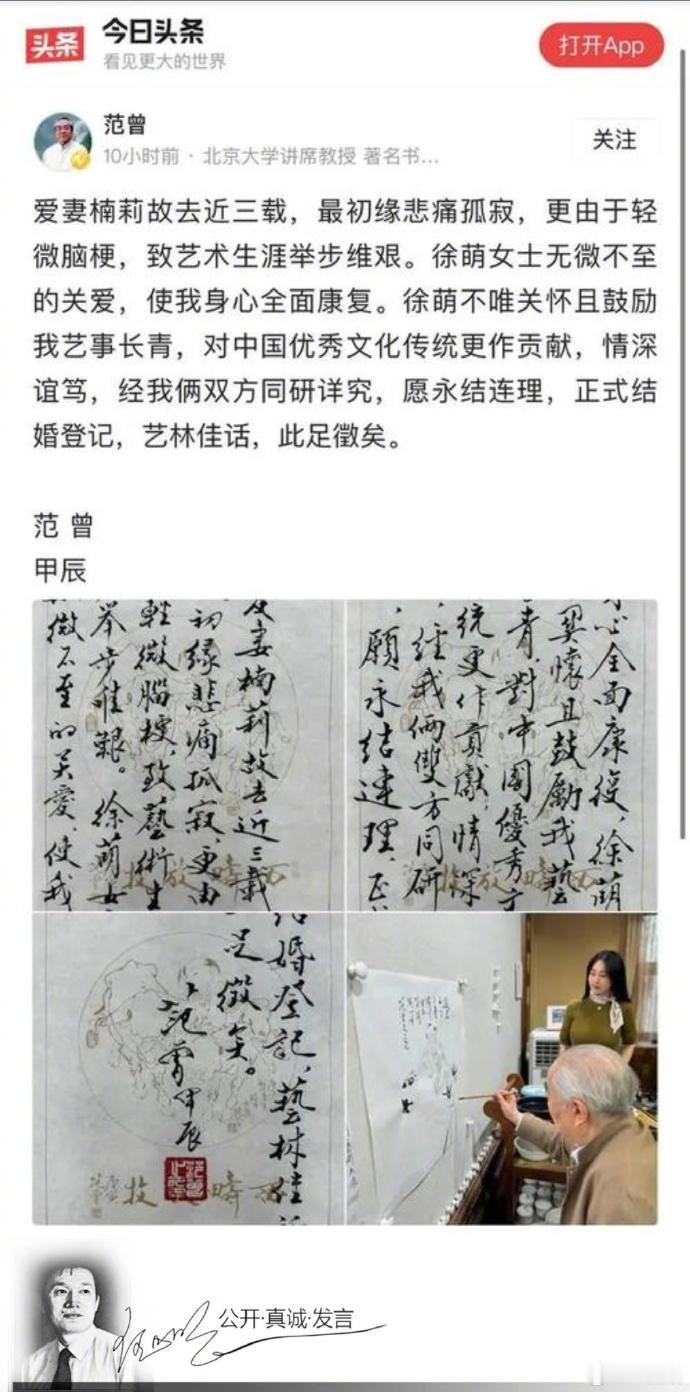 头条
今日头条
看见更大的世界
打开App
范曾
10小时前 · 北京大学讲席教授 著名书...
关注
爱妻楠莉故去近三载，最初缘悲痛孤寂，更由于轻
微脑梗，致艺术生涯举步维艰。徐萌女士无微不至
的关爱，使我身心全面康复。徐萌不唯关怀且鼓励
我艺事长青，对中国优秀文化传统更作贡献，情深
谊笃，经我俩双方同研详究，愿永结连理，正式结
婚登记，艺林佳话，此足徵矣。
范 曾
甲辰
爱妻楠莉故去近三载
初缘悲痛孤寂，更由
輕微腦梗，致藝術生
举步维艱。徐萌女
微不至的关爱，使我
心全面康復，徐萌
関懷且鼓勵我藝
青，對中國優秀文
統更作貢獻，情深
經我俩雙方同研
願永结連理，正
结婚登记，藝林佳话
足徵矣。
范曾甲辰
公开·真诚·发言